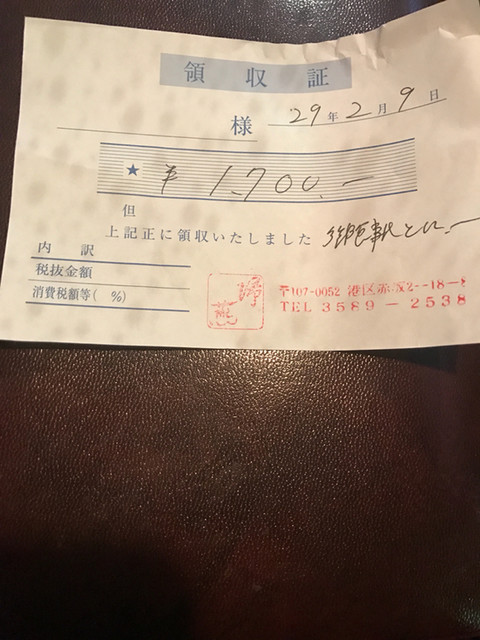 領収証
29年2月9日
様
★ ¥ 1,700.—
但
上記正に領収いたしました 御食事代として
内訳
税抜金額
消費税額等( %)
〒107-0052 港区赤坂2--18-8
TEL 3589-2538